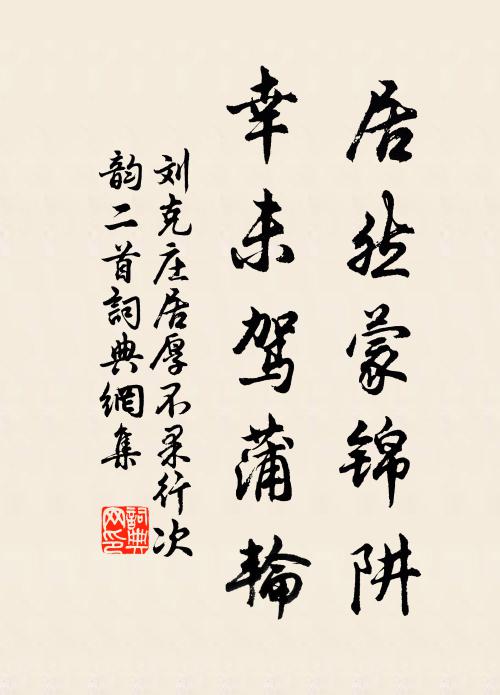 居然蒙锦阱
幸未驾蒲輪
刘克庄居厚不果行次
韵二首詞典網集
詞典网印